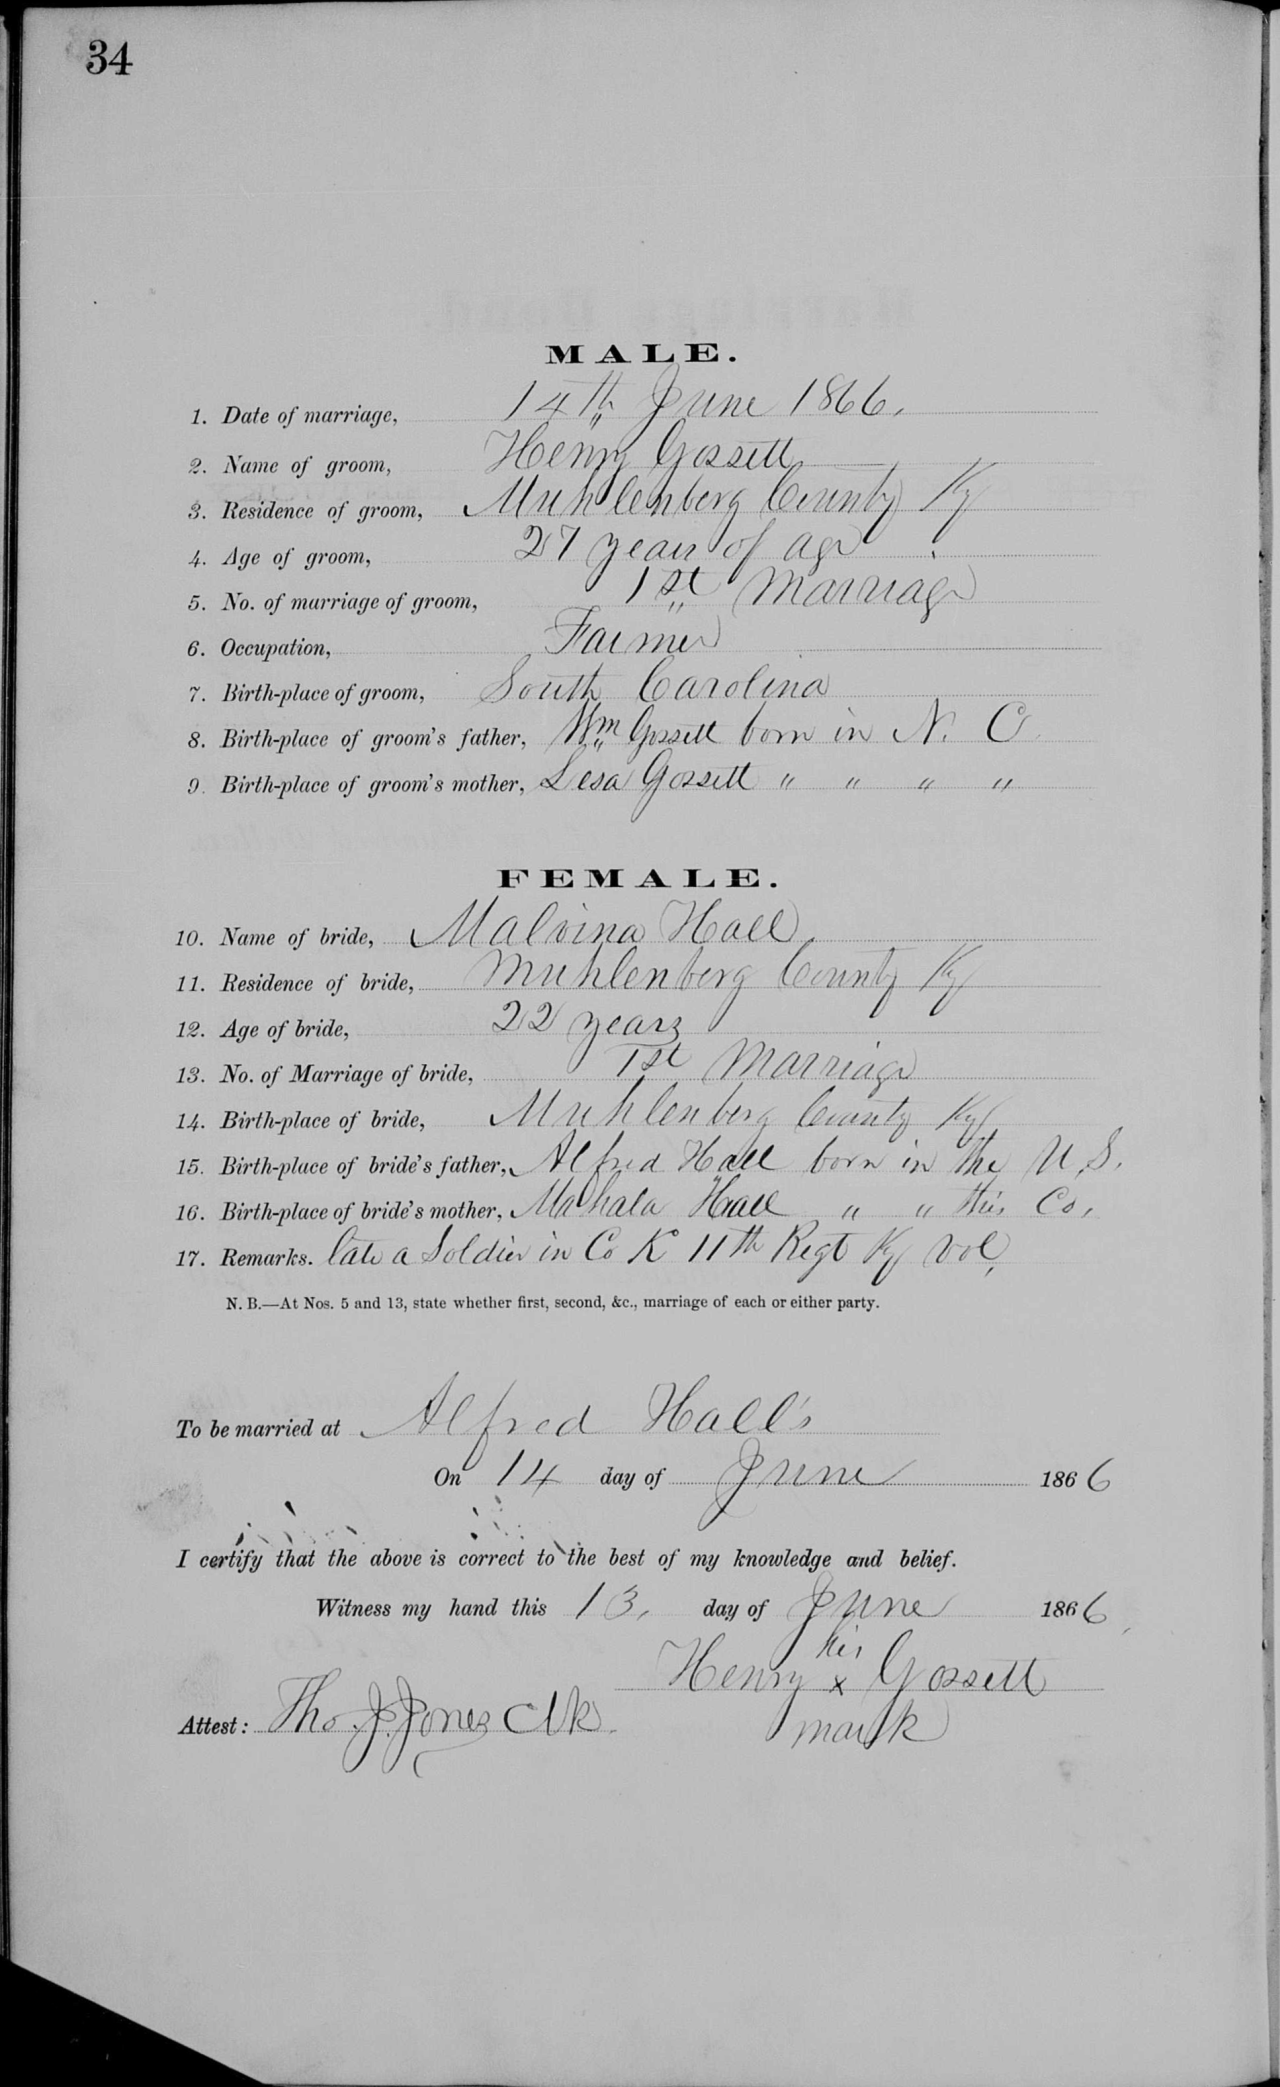 34
MALE.
1. Date of marriage, 14th June 1866.
2. Name of groom, Henry Gossett
3. Residence of groom, Muhlenberg County Ky
4. Age of groom, 27 years of age
5. No. of marriage of groom, 1st Marriage
6. Occupation, Farmer
7. Birth-place of groom, South Carolina
8. Birth-place of groom's father, Wm Gossett born in N. C.
9. Birth-place of groom's mother, Lesa Gossett " " " "
FEMALE.
10. Name of bride, Malvina Hall
11. Residence of bride, Muhlenberg County Ky
12. Age of bride, 22 years
13. No. of Marriage of bride, 1st Marriage
14. Birth-place of bride, Muhlenberg County Ky
15. Birth-place of bride's father, Alfred Hall born in the U.S.
16. Birth-place of bride's mother, Mahala Hall " " this Co.
17. Remarks. late a Soldier in Co K 11th Regt Ky Vol,
N. B.—At Nos. 5 and 13, state whether first, second, &c., marriage of each or either party.
To be married at Alfred Hall's
On 14 day of June 1866
I certify that the above is correct to the best of my knowledge and belief.
Witness my hand this 13, day of June 1866
his
Henry x Gossett
Attest: Tho. J. Jones Clk. mark